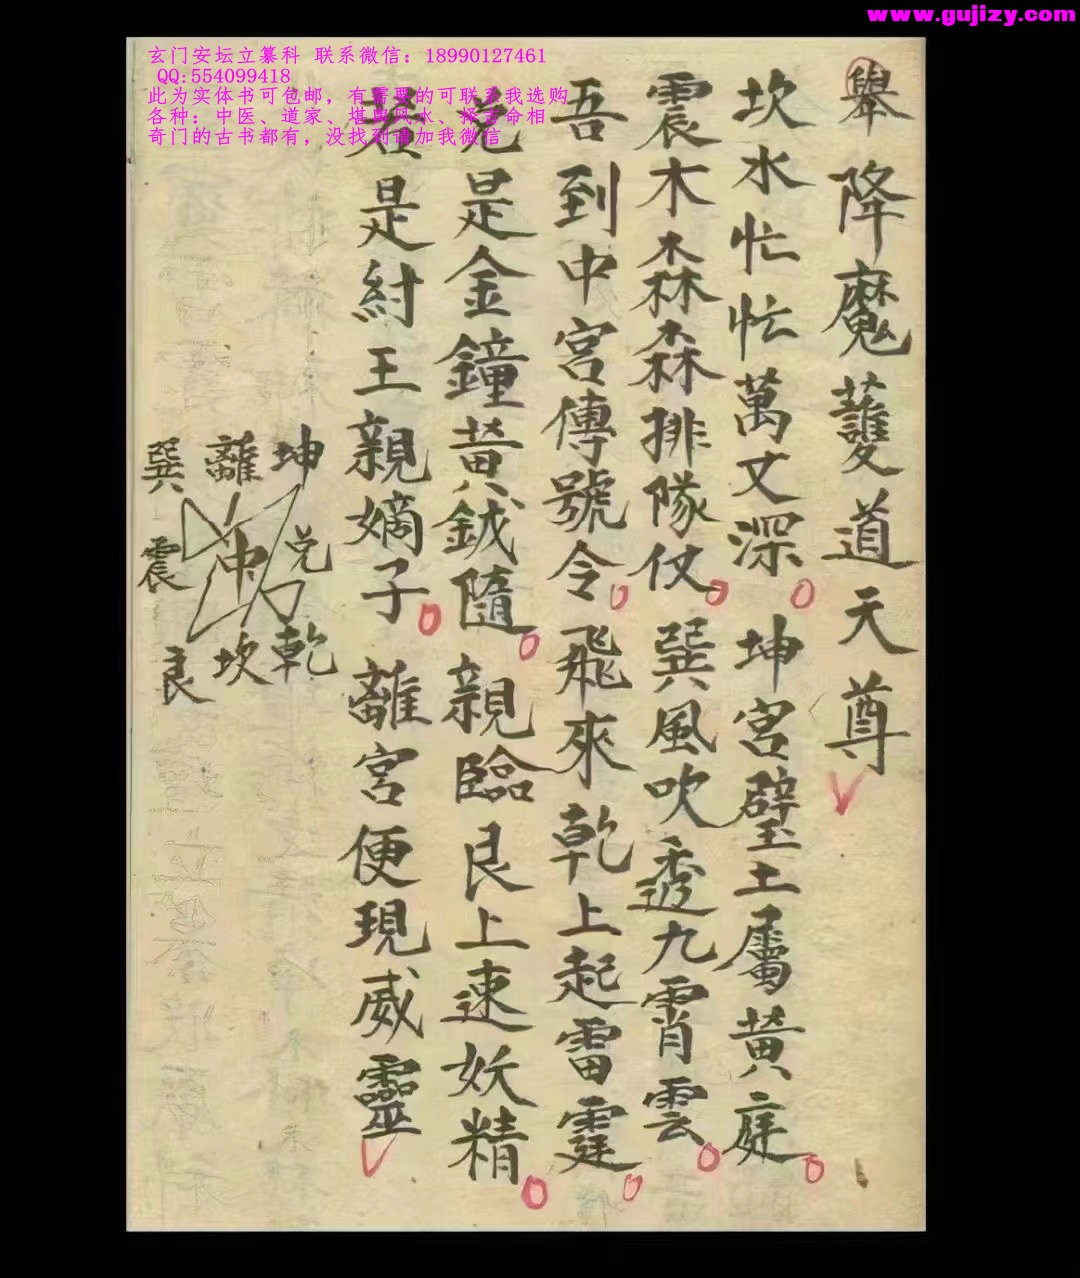 www.gujizy.com
玄门安坛立纂科 联系微信：18990127461
QQ:554099418
此为实体书可包邮，有需要的可联系我选购
各种：中医、道家、堪舆风水、择吉命相
奇门的古书都有，没找到请加我微信
舉降魔護道天尊
坎水忙忙萬丈深 坤宮壁土屬黃庭
震木森森排隊仗 巽風吹透九霄雲
吾到中宮傳號令 飛來乾上起雷霆
兌是金鐘黃鉞隨 親臨艮上速妖精
是紂王親嫡子 離宮便現威靈
坤 離 巽
兌 中 震
乾 坎 艮